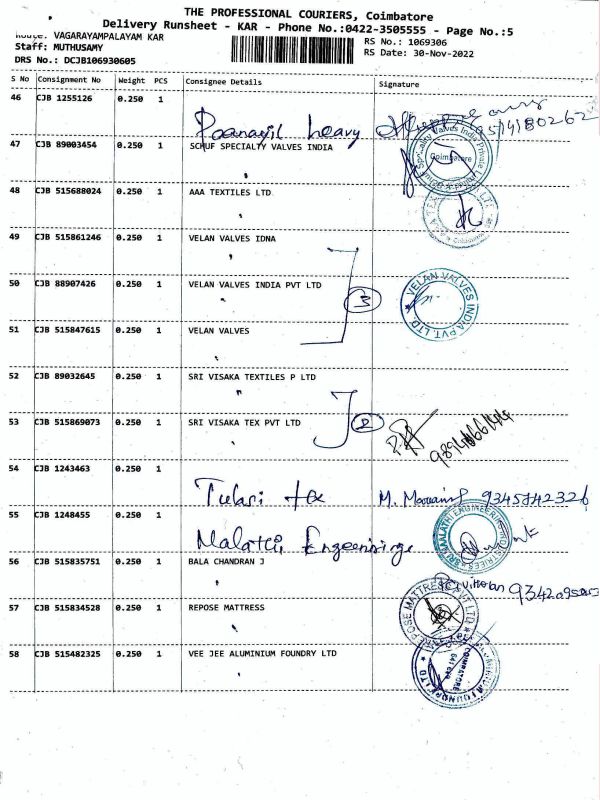 THE PROFESSIONAL COURIERS, Coimbatore
Delivery Runsheet - KAR - Phone No.:0422-3505555 - Page No.:5
Route: VAGARAYAMPALAYAM KAR
Staff: MUTHUSAMY
DRS No.: DCJB106930605
RS No.: 1069306
RS Date: 30-Nov-2022
S No Consignment No Weight PCS Consignee Details Signature
46 CJB 1255126 0.250 1
heavy
47 CJB 89003454 0.250 1 SCHUF SPECIALTY VALVES INDIA
Coimbatore
48 CJB 515688024 0.250 1 AAA TEXTILES LTD
49 CJB 515861246 0.250 1 VELAN VALVES IDNA
50 CJB 88907426 0.250 1 VELAN VALVES INDIA PVT LTD
3
VELAN VALVES INDIA PVT. LTD.
51 CJB 515847615 0.250 1 VELAN VALVES
52 CJB 89032645 0.250 1 SRI VISAKA TEXTILES P LTD
53 CJB 515869073 0.250 1 SRI VISAKA TEX PVT LTD
2
54 CJB 1243463 0.250 1
Tulasi tex
55 CJB 1248455 0.250 1
Malathi
SRI MALATHI ENGINEERING INDUSTRIES
56 CJB 515835751 0.250 1 BALA CHANDRAN J
57 CJB 515834528 0.250 1 REPOSE MATTRESS
REPOSE MATTRESS PVT LTD
58 CJB 515482325 0.250 1 VEE JEE ALUMINIUM FOUNDRY LTD
COIMBATORE